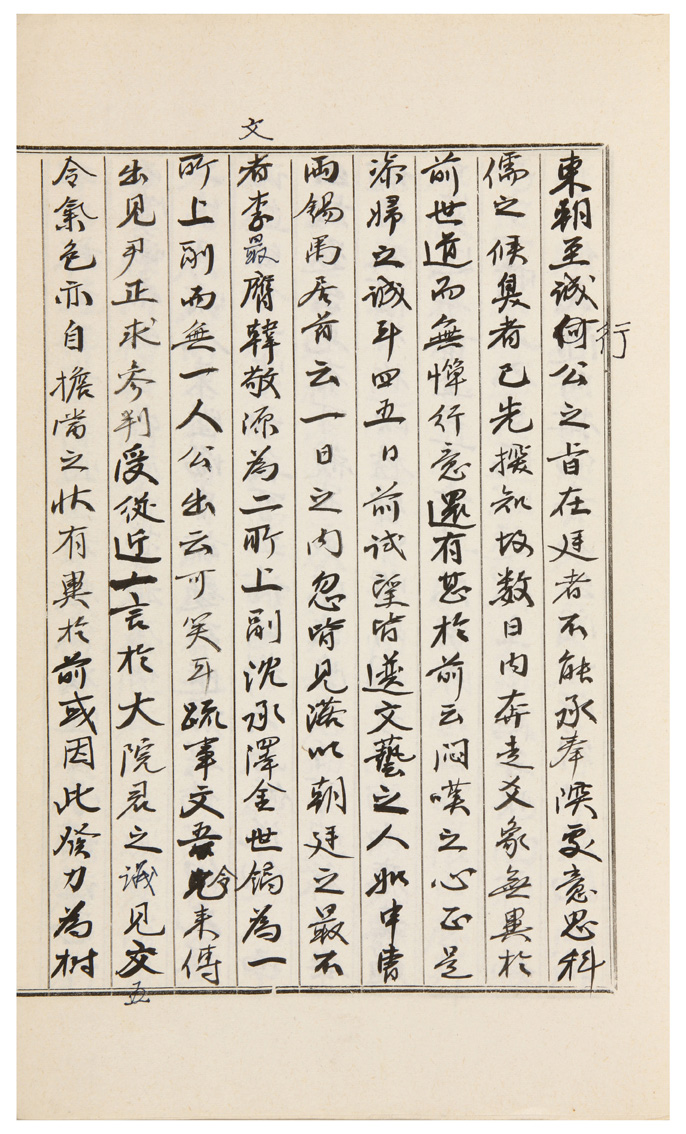 文
東朝至誠何公之旨在廷者不能承奉深處意思科
行
儒之候臭者已先探知故数日內奔走爻象無異於
前世道而無憚行意還有甚於前云悶嘆之心正是
漆婦之誠耳四五日前試望皆遴文藝之人如申曺
兩錫禹居首云一日之内忽皆見漆以朝廷之最不
者李最膺韓敬源為二所上副沈承澤金世鎬為一
所上副而無一人公出云可笑耳疏事文吾令來傳
出見尹正求參判受從近十言於大院君之誠見文
五
令氣色亦自擔當之狀有異於前或因此發力為樹